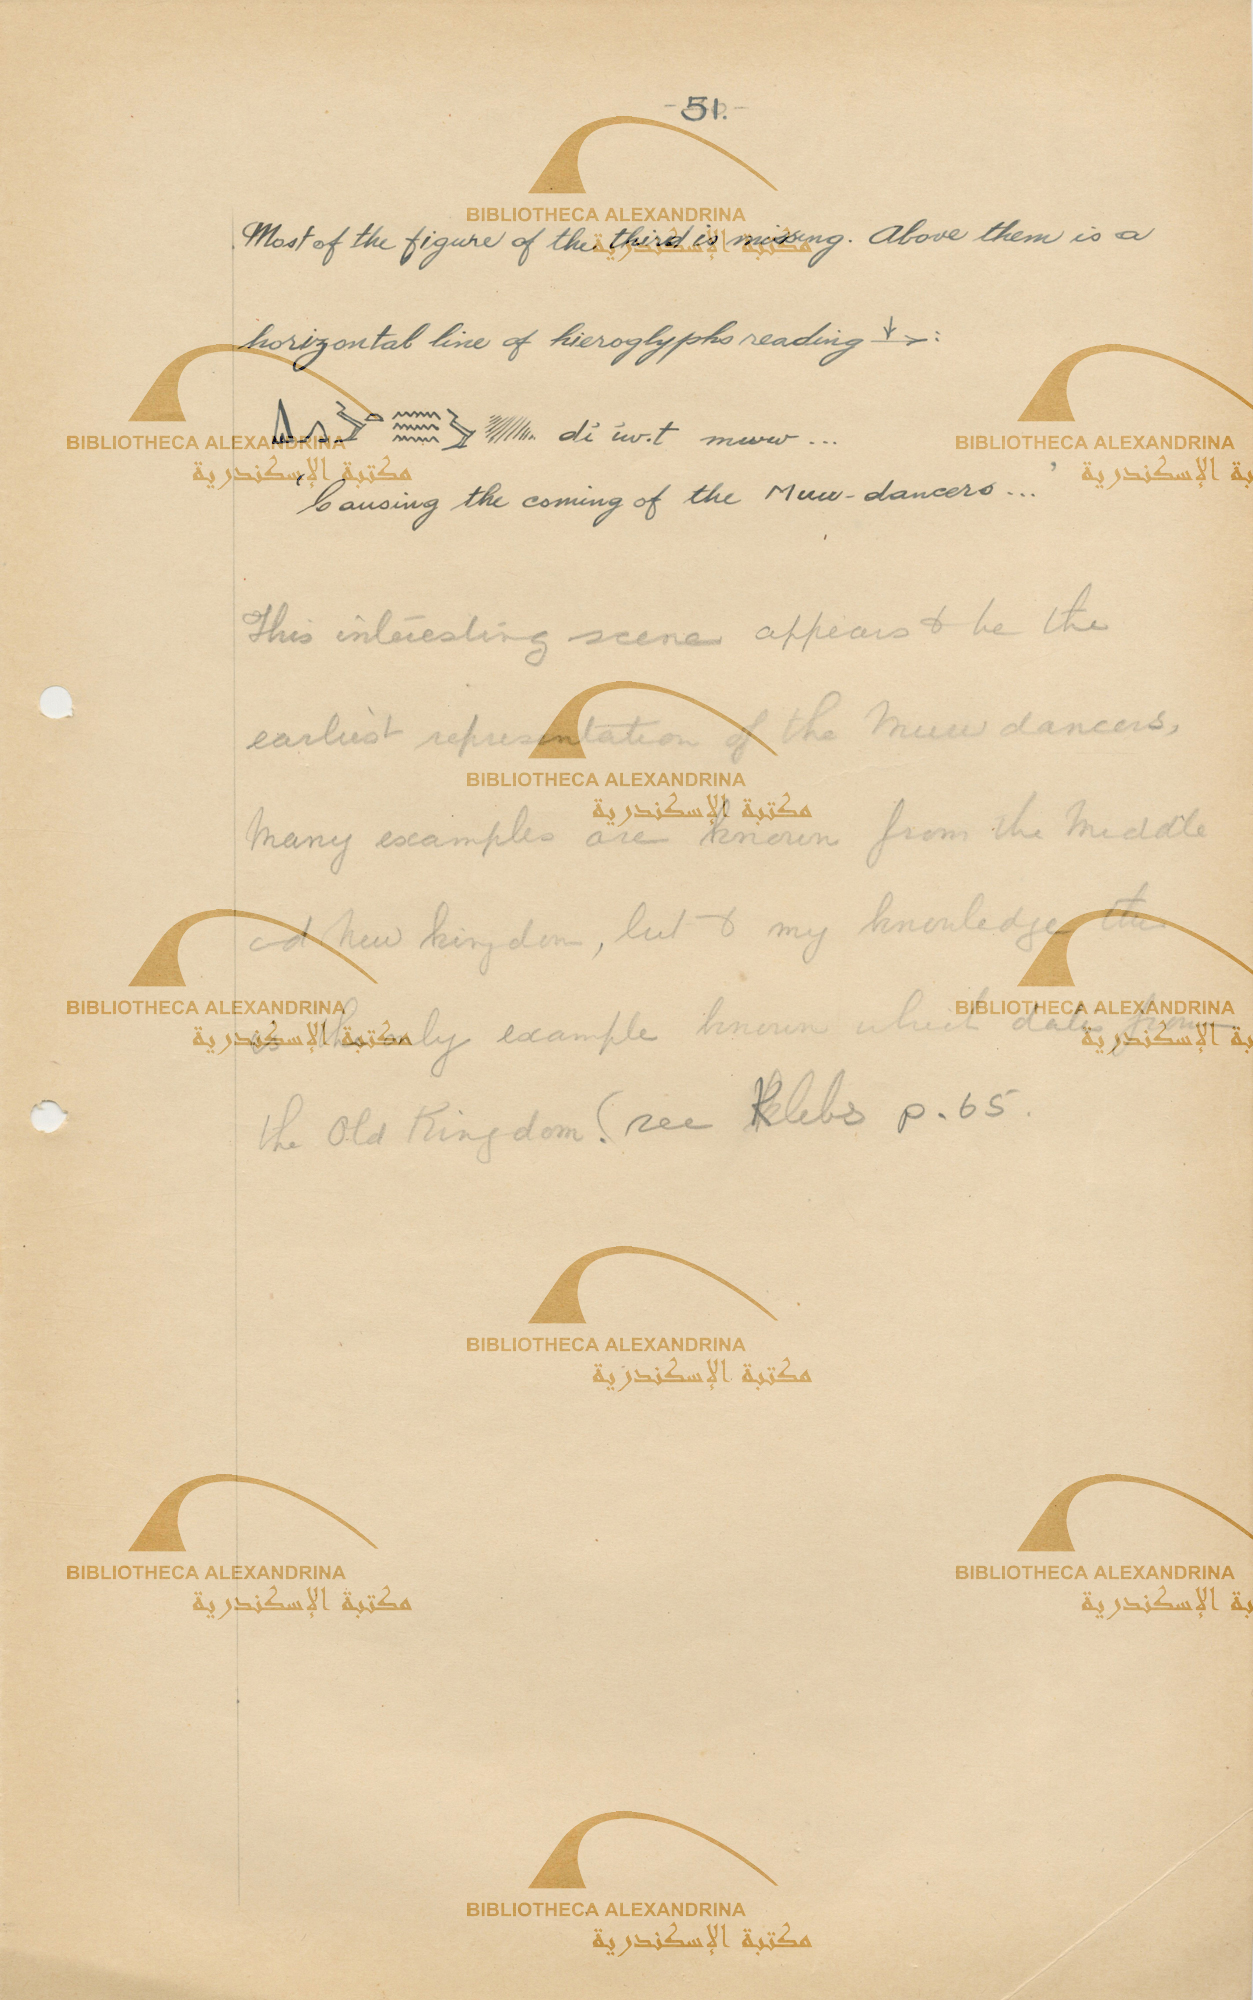 -51.-
Most of the figure of the third is missing. Above them is a
horizontal line of hieroglyphs reading ↓→:
di iw.t mww ...
'Causing the coming of the Muu-dancers ...'
This interesting scene appears to be the
earliest representation of the Muu dancers,
Many examples are known from the Middle
and New Kingdom, but to my knowledge this
is the only example known which dates from
the Old Kingdom. (see Klebs p. 65.
BIBLIOTHECA ALEXANDRINA
مكتبة الإسكندرية